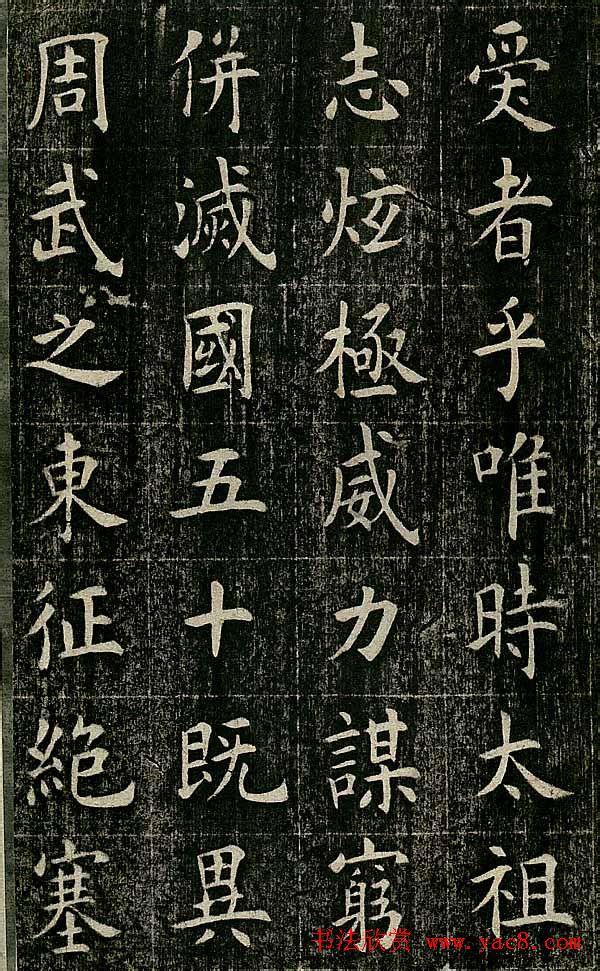 爰者乎唯時太祖
志炫極威力謀窮
併滅國五十既異
周武之東征絕塞
书法欣赏 www.yac8.com